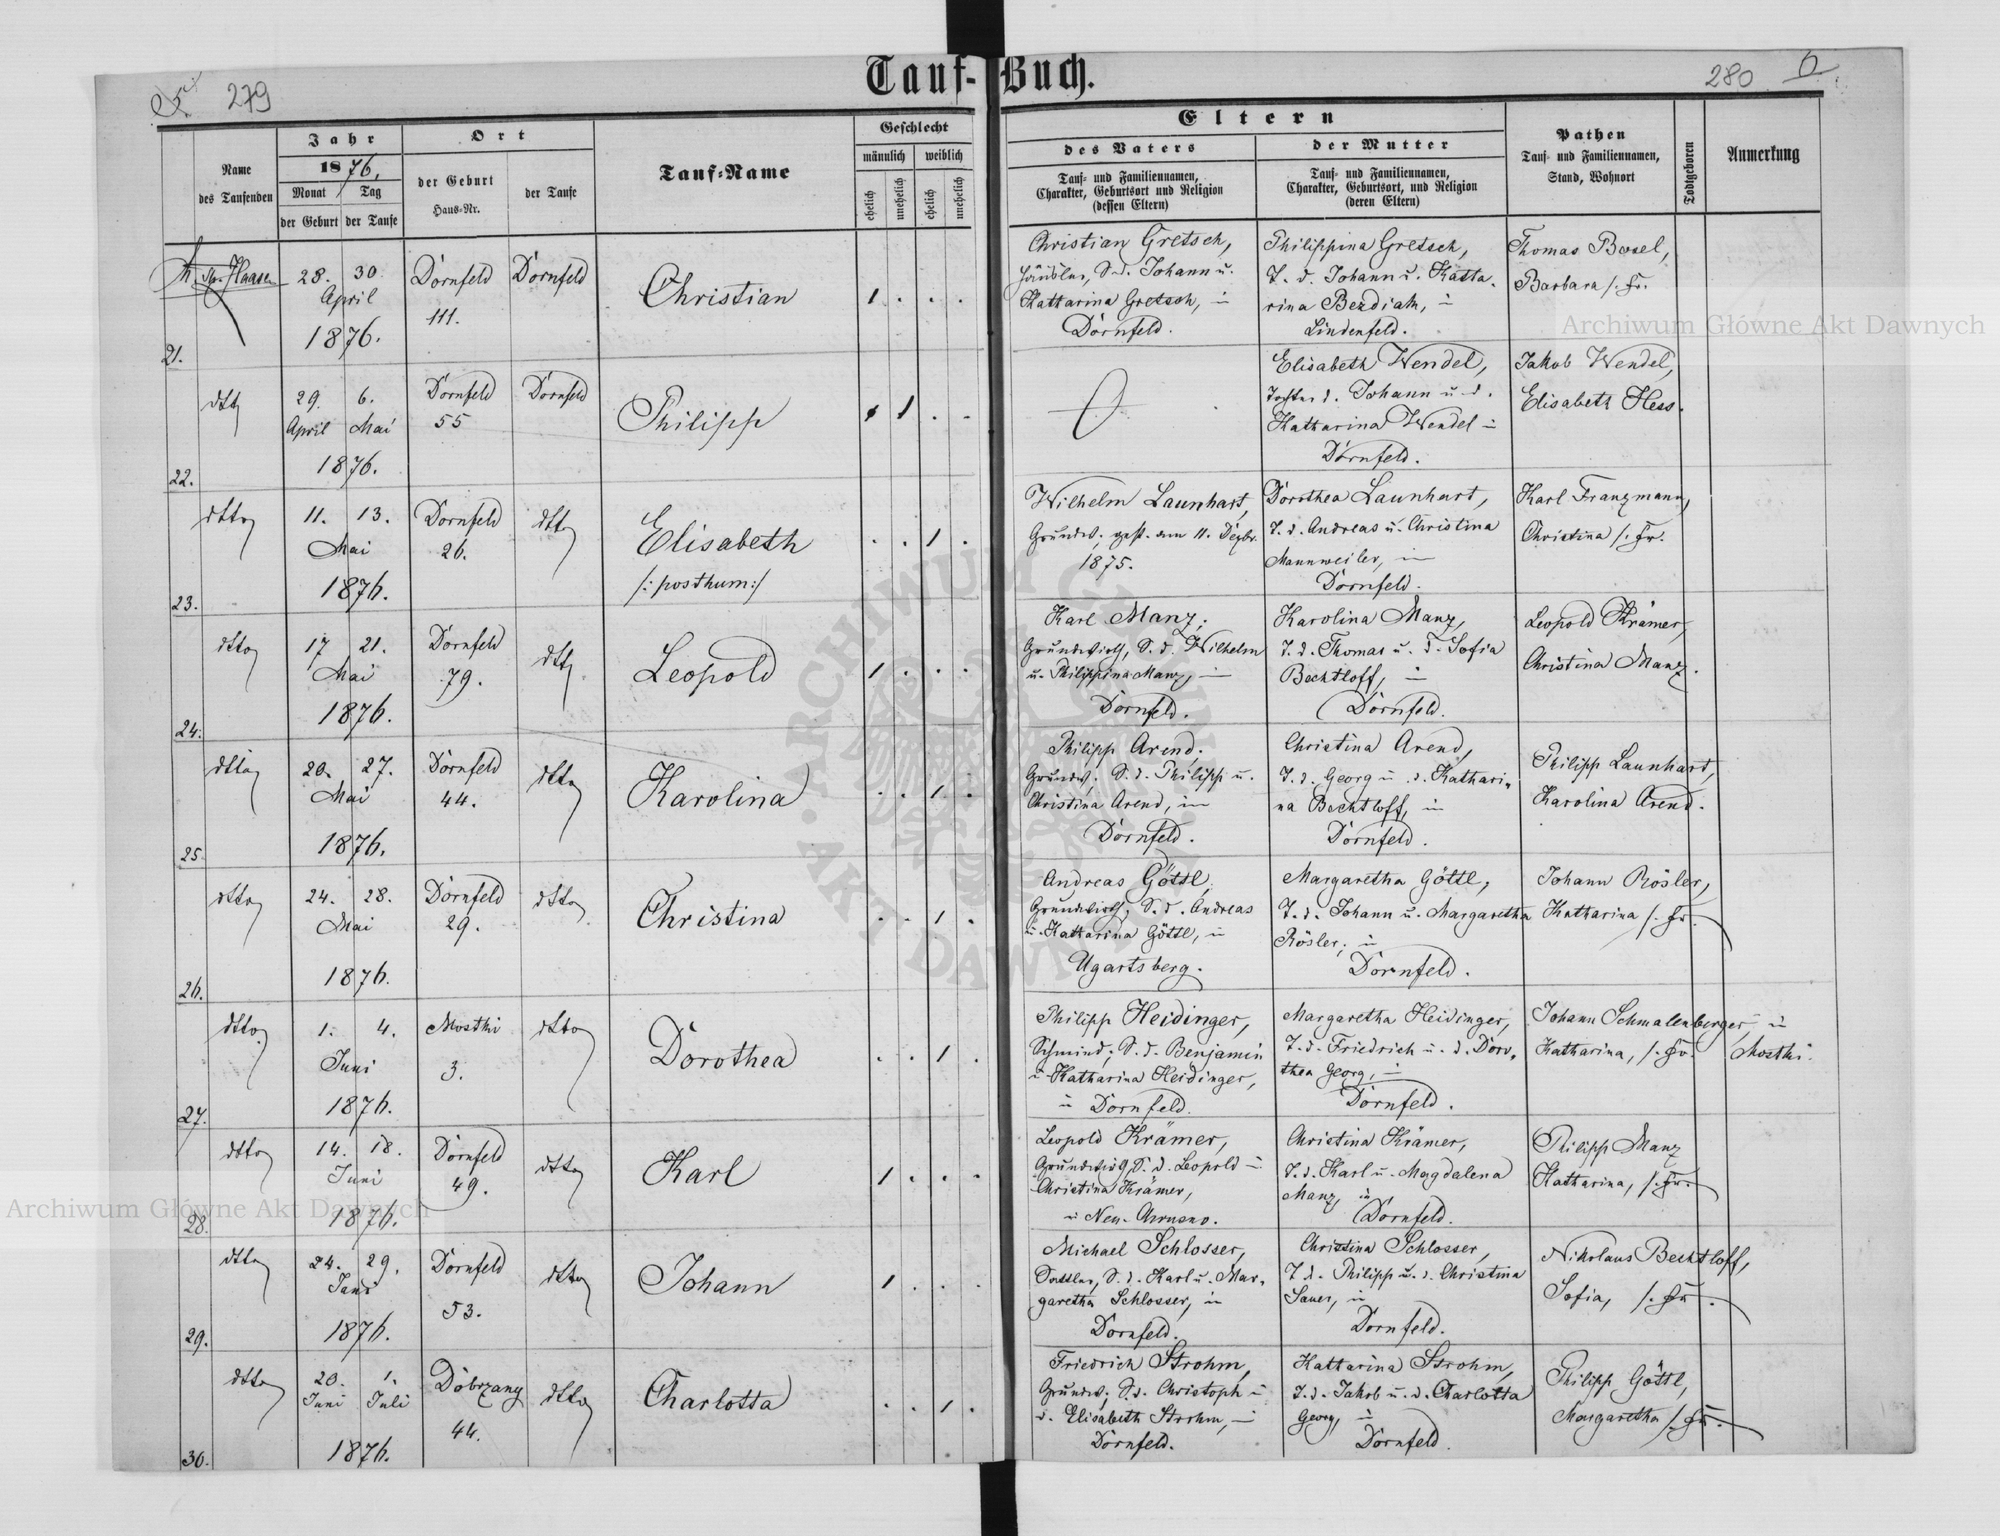 Tauf-Buch.
279
280 6
Name des Taufenden
Jahr
1876.
Monat Tag
der Geburt der Taufe
Ort
der Geburt
Haus-Nr.
der Taufe
Tauf-Name
Geschlecht
männlich weiblich
ehelich unehelich ehelich unehelich
Eltern
des Vaters
Tauf- und Familiennamen,
Charakter, Geburtsort und Religion
(dessen Eltern)
der Mutter
Tauf- und Familiennamen,
Charakter, Geburtsort, und Religion
(deren Eltern)
Pathen
Tauf- und Familiennamen,
Stand, Wohnort
Todtgeboren
Anmerkung
21.
Haase
28. 30.
April
1876.
Dornfeld
111.
Dornfeld
Christian
1 . . .
Christian Gretsch,
Häusler, S. d. Johann u.
Katharina Gretsch, in
Dornfeld.
Philippina Gretsch,
T. d. Johann u. Katha-
rina Bezdiak, in
Lindenfeld.
Thomas Basel,
Barbara /. Fr.
22.
dtto
29. 6.
April Mai
1876.
Dornfeld
55
Dornfeld
Philipp
1 . .
Elisabeth Wendel,
Tochter d. Johann u. d.
Katharina Wendel in
Dornfeld.
Jakob Wendel,
Elisabeth Hess.
23.
dtto
11. 13.
Mai
1876.
Dornfeld
26.
dtto
Elisabeth
/: posthum :/
. . 1 .
Wilhelm Launhart,
Grundw., gest. am 11. Dezbr.
1875.
Dorothea Launhart,
T. d. Andreas u. Christina
Mannweiler, in
Dornfeld.
Karl Franzmann,
Christina /. Fr.
24.
dtto
17 21.
Mai
1876.
Dornfeld
79.
dtto
Leopold
1 . . .
Karl Manz,
Grundwirth, S. d. Wilhelm
u. Philippina Manz, in
Dornfeld.
Karolina Manz,
T. d. Thomas u. d. Sofia
Bechtloff, in
Dornfeld.
Leopold Krämer,
Christina Manz.
25.
dtto
20. 27.
Mai
1876.
Dornfeld
44.
dtto
Karolina
. . 1 .
Philipp Arend,
Grundw. S. d. Philipp u.
Christina Arend, in
Dornfeld.
Christina Arend,
T. d. Georg u. d. Kathari-
na Bechtloff, in
Dornfeld.
Philipp Launhart,
Karolina Arend.
26.
dtto
24. 28.
Mai
1876.
Dornfeld
29.
dtto
Christina
. . 1 .
Andreas Göttl,
Grundwirth, S. d. Andreas
u. Katharina Göttl, in
Ugartsberg.
Margaretha Göttl,
T. d. Johann u. Margaretha
Rösler, in
Dornfeld.
Johann Rösler,
Katharina /. Fr.
27.
dtto
1. 4.
Juni
1876.
Mostki
3.
dtto
Dorothea
. . 1 .
Philipp Heidinger,
Schmied, S. d. Benjamin
u. Katharina Heidinger,
in Dornfeld.
Margaretha Heidinger,
T. d. Friedrich u. d. Doro-
thea Georg, in
Dornfeld.
Johann Schmalenberger, in
Katharina, /. Fr. Mostki.
28.
dtto
14. 18.
Juni
1876.
Dornfeld
49.
dtto
Karl
1 . . .
Leopold Krämer,
Grundwirth, S. d. Leopold u.
Christina Krämer,
in Neu-Chrusno.
Christina Krämer,
T. d. Karl u. Magdalena
Manz, in
Dornfeld.
Philipp Manz
Katharina, /. Fr.
29.
dtto
24. 29.
Juni
1876.
Dornfeld
53.
dtto
Johann
1 . . .
Michael Schlosser,
Sattler, S. d. Karl u. Mar-
garetha Schlosser, in
Dornfeld.
Christina Schlosser,
T. d. Philipp u. d. Christina
Sauer, in
Dornfeld.
Nikolaus Bechtloff,
Sofia, /. Fr.
30.
dtto
20. 1.
Juni Juli
1876.
Dobrzany
44.
dtto
Charlotta
. . 1 .
Friedrich Strohm,
Grundw., S. d. Christoph u.
d. Elisabeth Strohm, in
Dornfeld.
Katharina Strohm,
T. d. Jakob u. d. Charlotta
Georg, in
Dornfeld.
Philipp Göttl,
Margaretha /. Fr.
Archiwum Główne Akt Dawnych
Archiwum Główne Akt Dawnych
ARCHIWUM GŁÓWNE AKT DAWNYCH